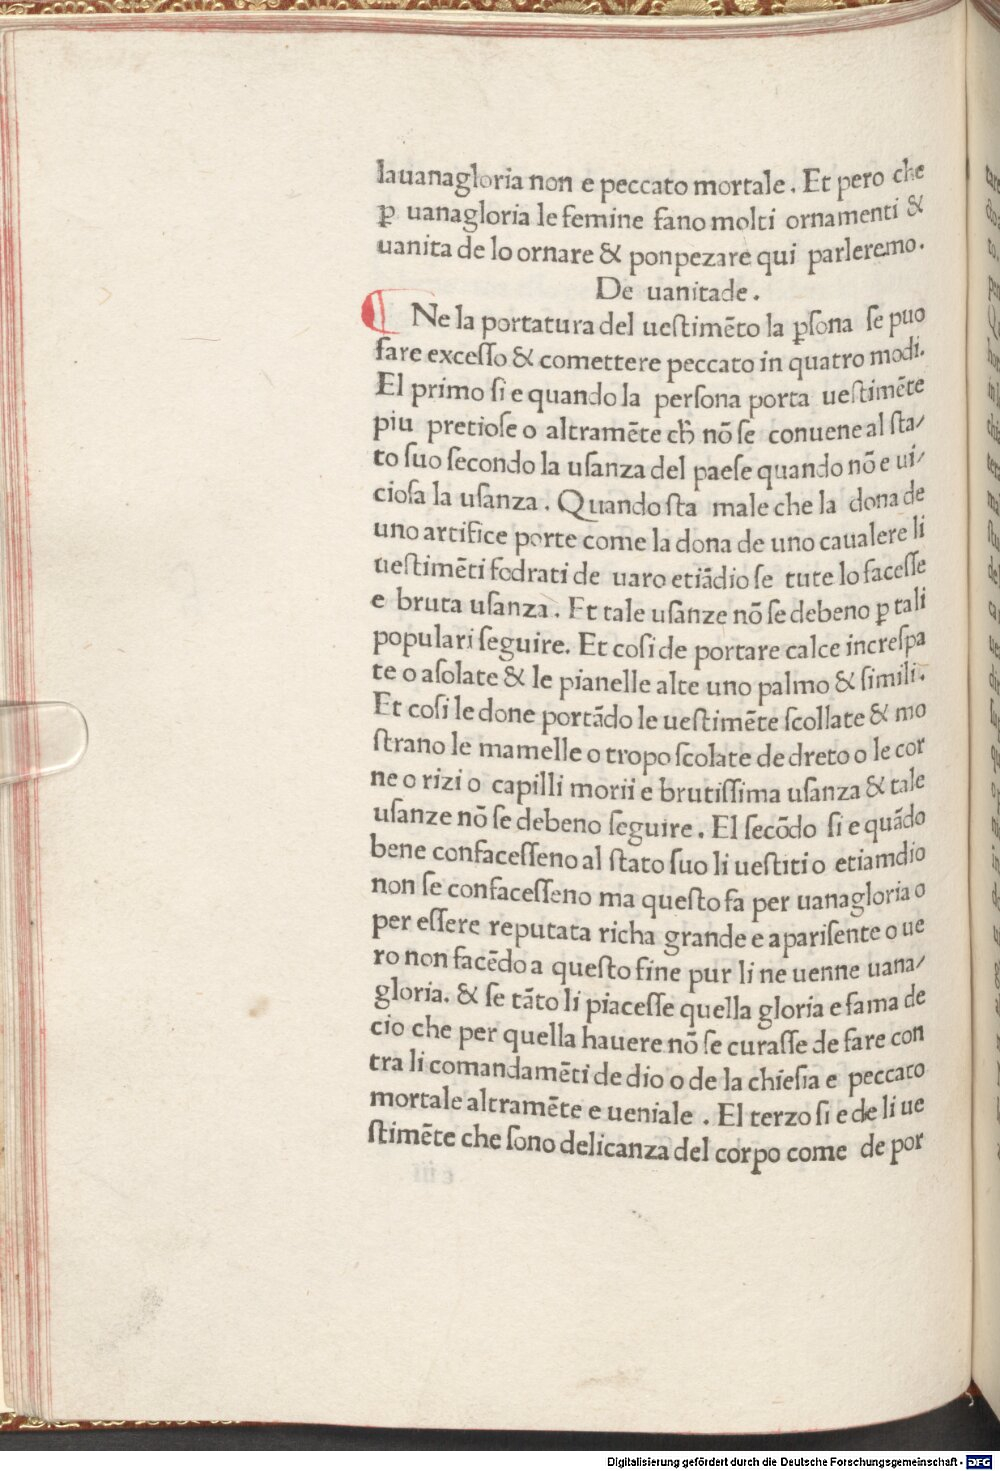 lauanagloria non e peccato mortale. Et pero che
ꝑ uanagloria le femine fano molti ornamenti &
uanita de lo ornare & ponpezare qui parleremo.
De uanitade.
Ne la portatura del ueſtimẽto la ꝑſona ſe puo
fare exceſſo & comettere peccato in quatro modi.
El primo ſi e quando la perſona porta ueſtimẽte
piu pretioſe o altramẽte ch̃ nõ ſe conuene al ſta/
to ſuo ſecondo la uſanza del paeſe quando nõ e ui/
cioſa la uſanza. Quando ſta male che la dona de
uno artifice porte come la dona de uno caualere li
ueſtimẽti fodrati de uaro etiãdio ſe tute lo faceſſe
e bruta uſanza. Et tale uſanze nõ ſe debeno ꝑ tali
populari ſeguire. Et coſi de portare calce increſpa
te o aſolate & le pianelle alte uno palmo & ſimili.
Et coſi le done portãdo le ueſtimẽte ſcollate & mo
ſtrano le mamelle o tropo ſcolate de dreto o le cor
ne o rizi o capilli morii e brutiſſima uſanza & tale
uſanze nõ ſe debeno ſeguire. El ſecõdo ſi e quãdo
bene confaceſſeno al ſtato ſuo li ueſtiti o etiamdio
non ſe confaceſſeno ma queſto fa per uanagloria o
per eſſere reputata richa grande e apariſente o ue
ro non facẽdo a queſto fine pur li ne uenne uana/
gloria. & ſe tãto li piaceſſe quella gloria e fama de
cio che per quella hauere nõ ſe curaſſe de fare con
tra li comandamẽti de dio o de la chieſia e peccato
mortale altramẽte e ueniale. El terzo ſi e de li ue
ſtimẽte che ſono delicanza del corpo come de por
Digitalisierung gefördert durch die Deutsche Forschungsgemeinschaft - DFG